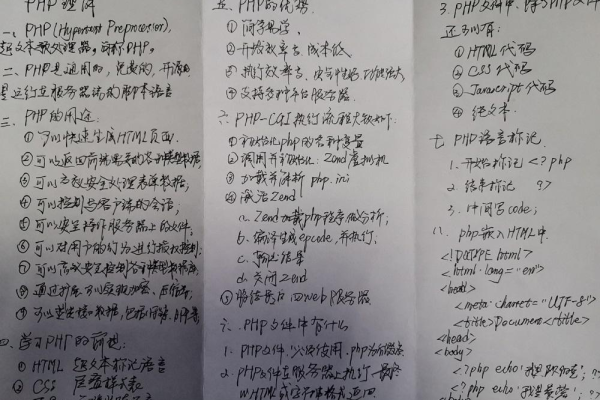 PHP理解
一、PHP(Hypertext Preprocessor),
超文本预处理器。简称PHP。
二、PHP是通用的,免费的,开源的
是运行在服务器端的脚本语言
三、PHP的用途:
① 可以快速生成HTML页面
② 可以返回前端需要的各种类型数据;
③ 可以安全处理表单数据,
④ 可以控制与客户端的会话;
⑤ 可以安全操作服务器上的文件;
⑥ 可以对用户的行为进行授权控制;
⑦ 可以高效安全控制各种类型数据库
⑧ 通过扩展可以实现加密、压缩等;
⑨ 可以
四、学习PHP的前提:
① HTML 超文本标记语言
② CSS 层叠样式表
五、PHP的优势:
① 简单易学,
② 开发效率高、成本低
③ 执行效率高,
④ 支持各种平台服务器
六、PHP-CGI执行流程大致如下:
① 初始化php的各种变量
② 调用并初始化 Zend虚拟机
③ 加载并解析 php.ini
④ 激活Zend
a. Zend加载php程序做分析;
b. 编译生成opcode,并执行,
c. 输出结果
d. 关闭Zend
⑤ 将结果返回web服务器
六、PHP文件中有什么
1. PHP文件,必须使用.php为后缀名
2. PHP文件在服务器上执行,最终
以HTML或字符串格式返回
3. PHP文件中,除了PHP文件
还可以有:
① HTML代码
② CSS代码
③ Javascript代码
④ 纯文本
七、PHP语言标记
1. 开始标记 <?php
2. 结束标记 ?>
3. 中间写code;
八、php嵌入HTML中
<!DOTYPE html>
<html lang="en">
<head>
<meta charset="UTF-8">
<title>Document</title>
</head>
<body>
<?php echo'我是'; ?>
<?php echo'我是